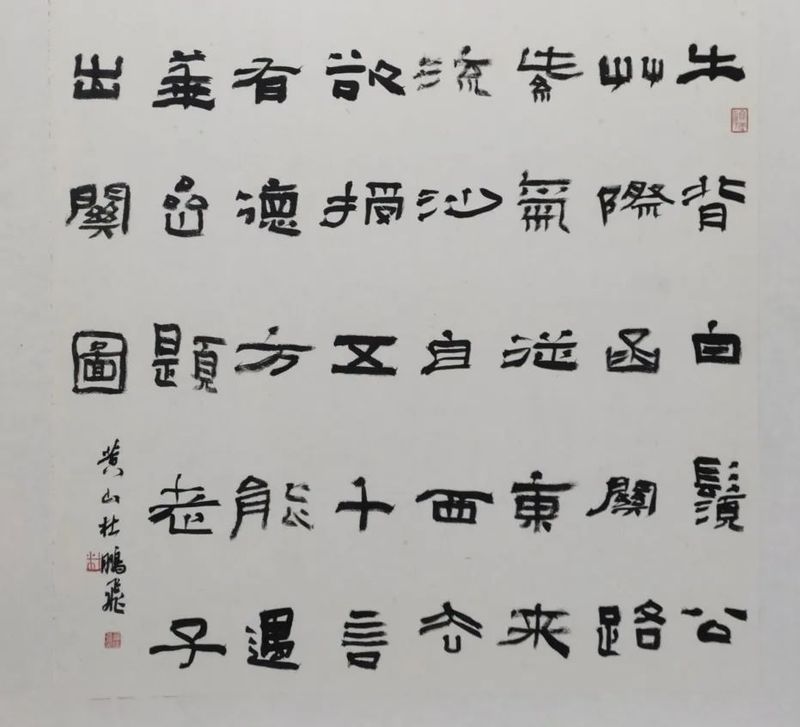 牛背白鬚公
艸際函關路
紫氣從東來
流沙自西去
欲授五千言
有德方能遇
華嵒題老子
出關圖
黃山杜鵬飛